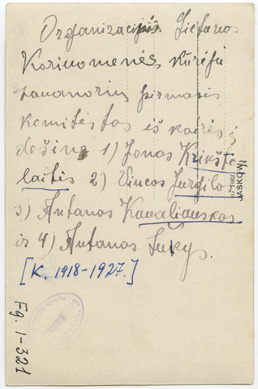 Organizacijos Lietuvos
Kariuomenės kūrėjų
savanorių pirmasis
komitetas iš kairės į
dešinę 1) Jonas Krikšto-
laitis 2) Vincas Jurgilas
3) Antanas Kavaliauskas
ir 4) Antanas Šukys.
[K. 1918-1927.]
JASKOWI
Fg. 1-321